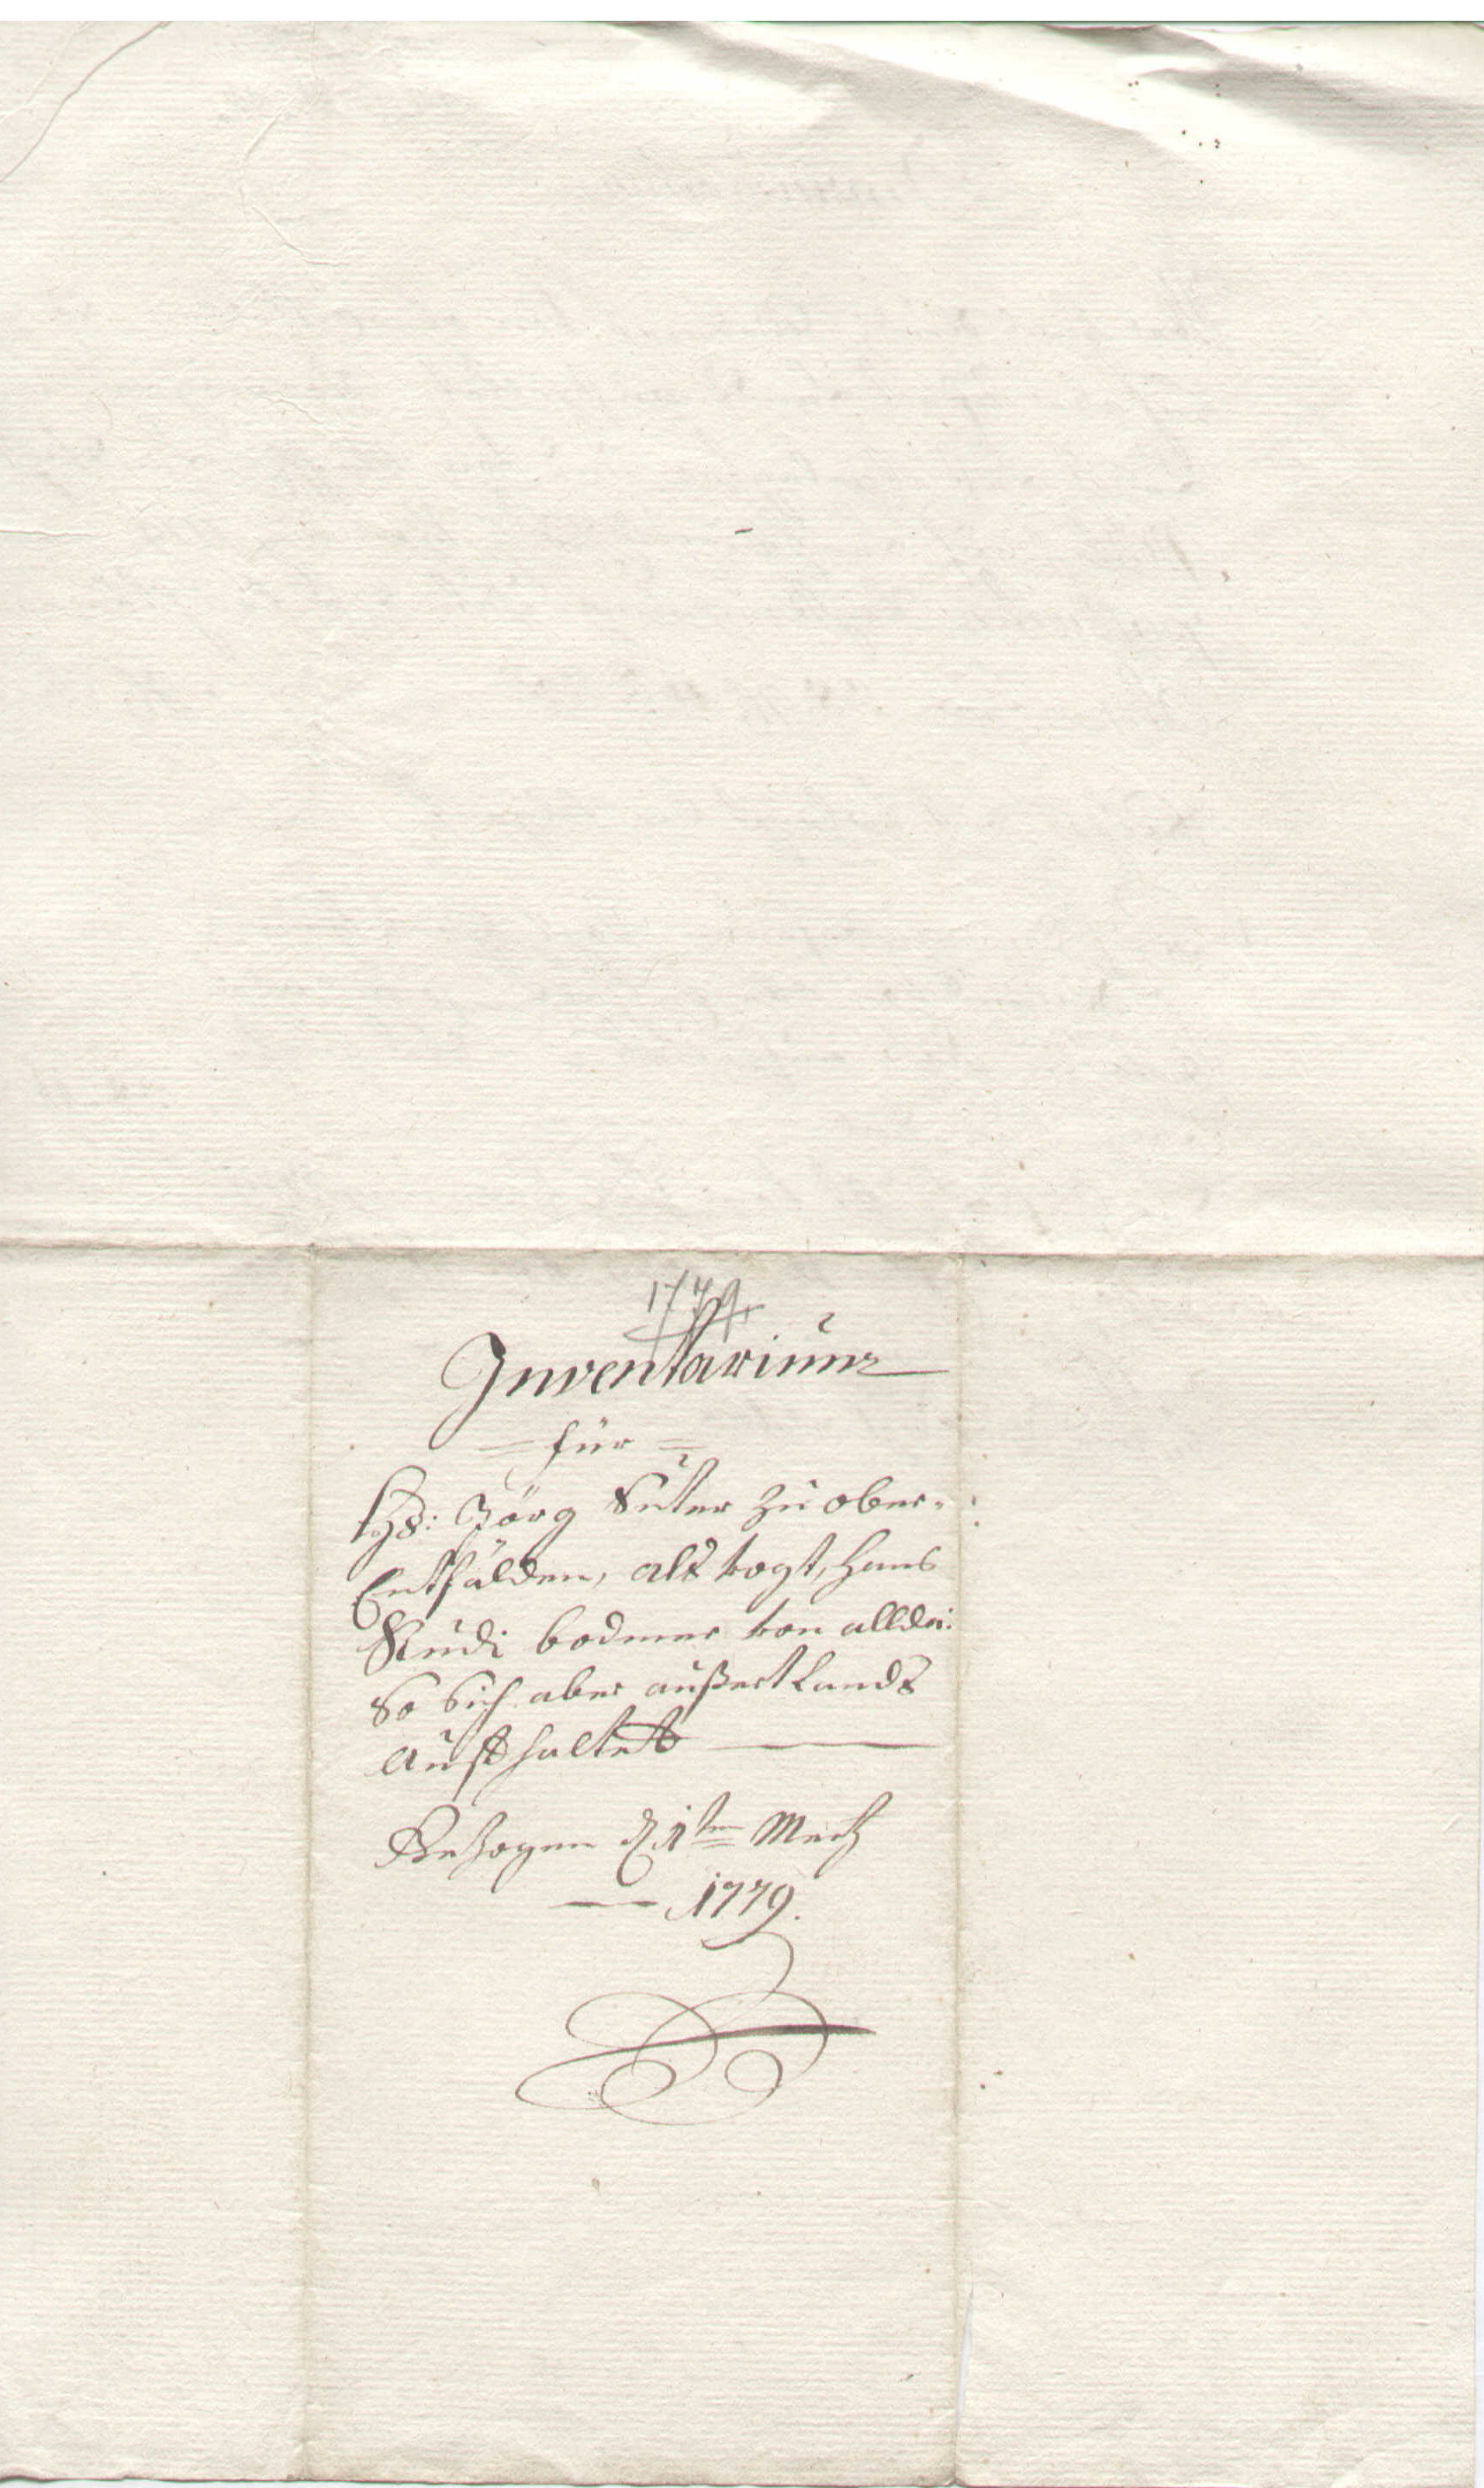 1779
Inventarium
= für =
Hs: Jörg Suter zu ober-
Entfälden, als vogt, Hans
Rudi bodmer von allda:
So sich aber außert Lands
Aufhaltet
Bezogen d 1ten Mertz
1779.